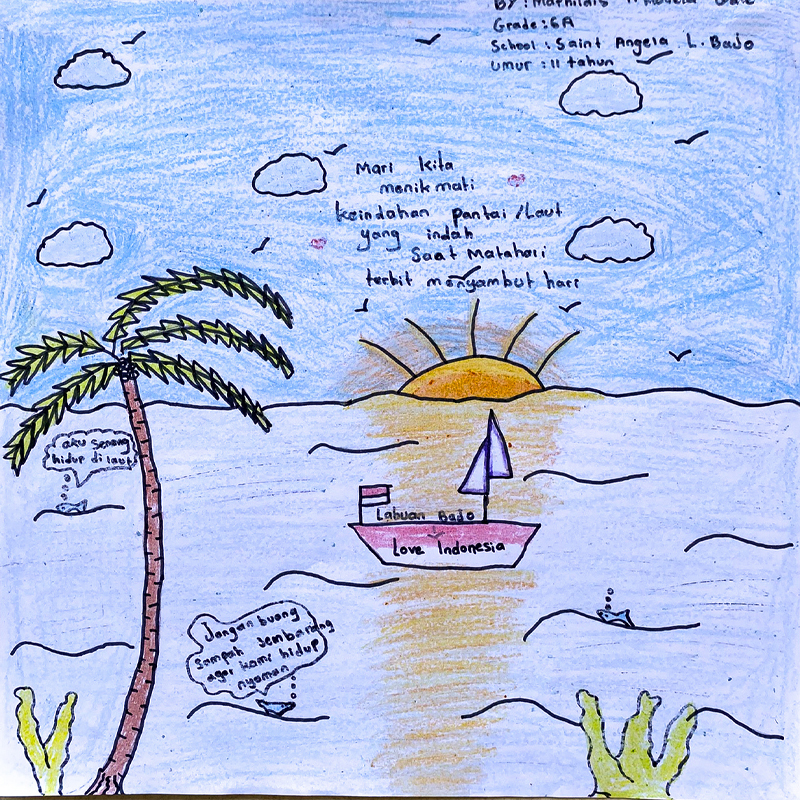 BY :
Grade : 6A
School : Saint Angela L. Bajo
Umur : 11 tahun
Mari kita
menikmati
keindahan pantai /Laut
yang indah
Saat Matahari
terbit menyambut hari
aku senang
hidup di laut
Labuan Bajo
Love Indonesia
Jangan buang
Sampah Sembarang
agar kami hidup
nyaman